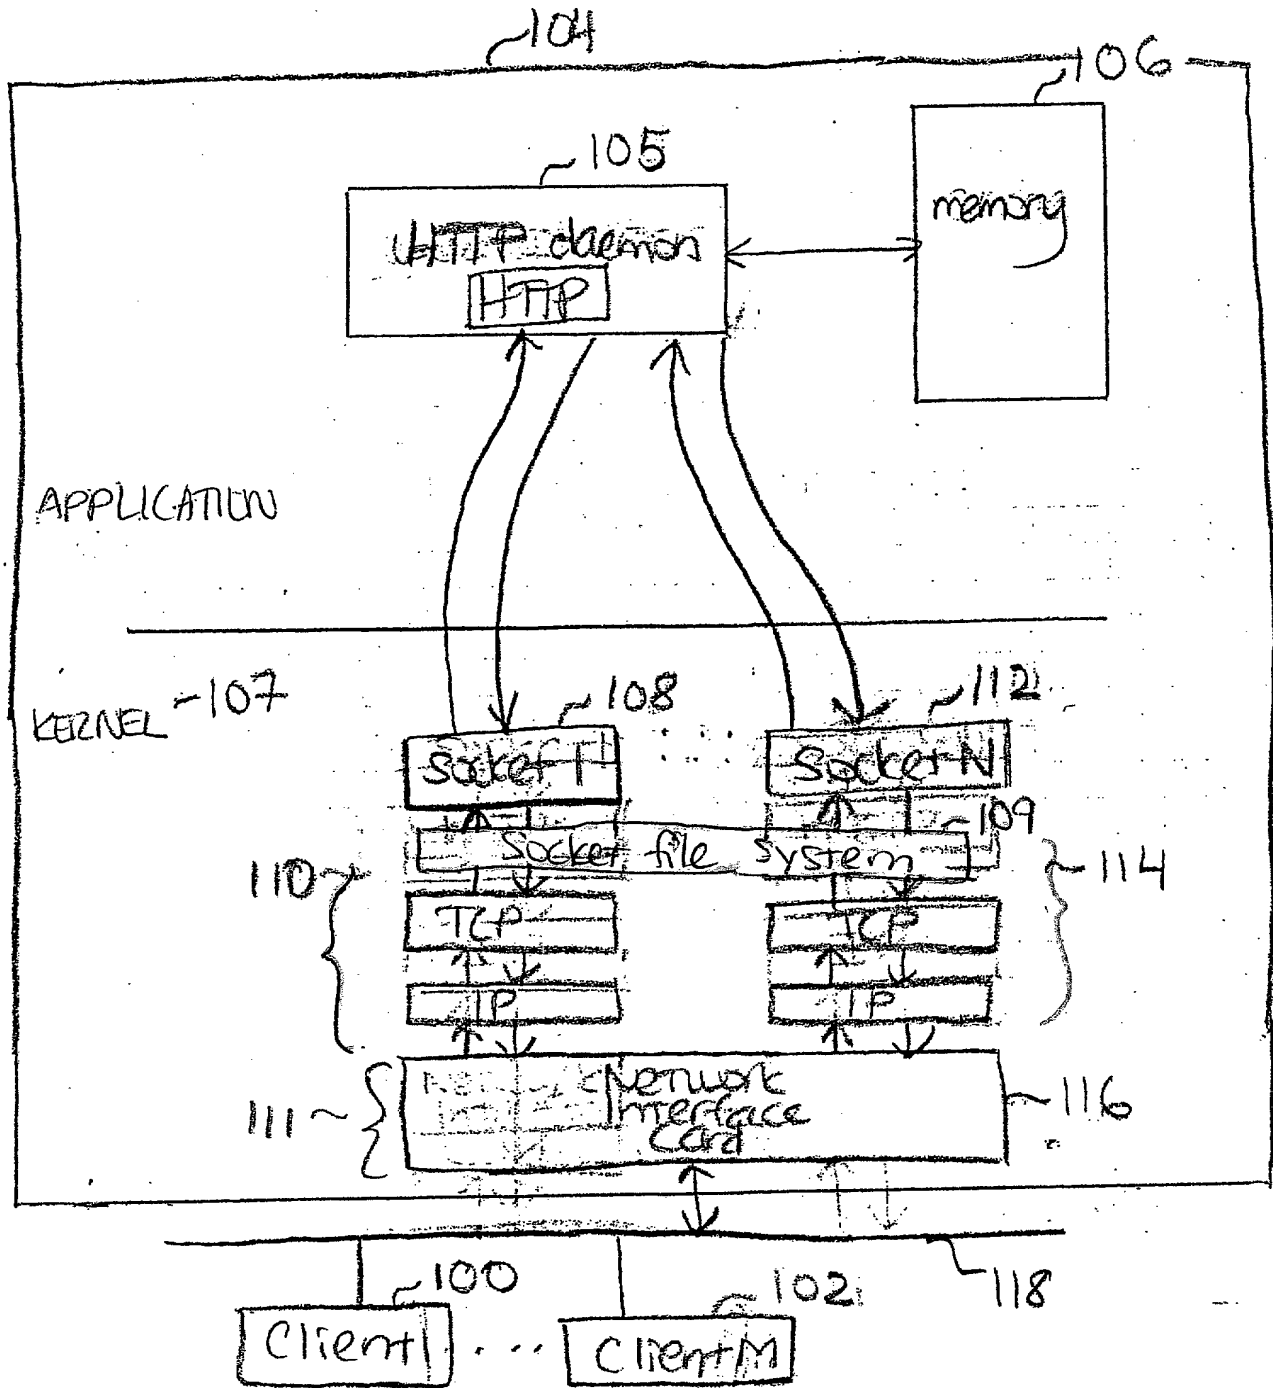 104
106
105
memory
HTTP daemon
HTTP
APPLICATION
KERNEL 107
108
112
Socket 1
Socket N
109
Socket file system
110
114
TCP
TCP
IP
IP
Network
Interface
Card
111
116
100
102
118
Client 1
Client M